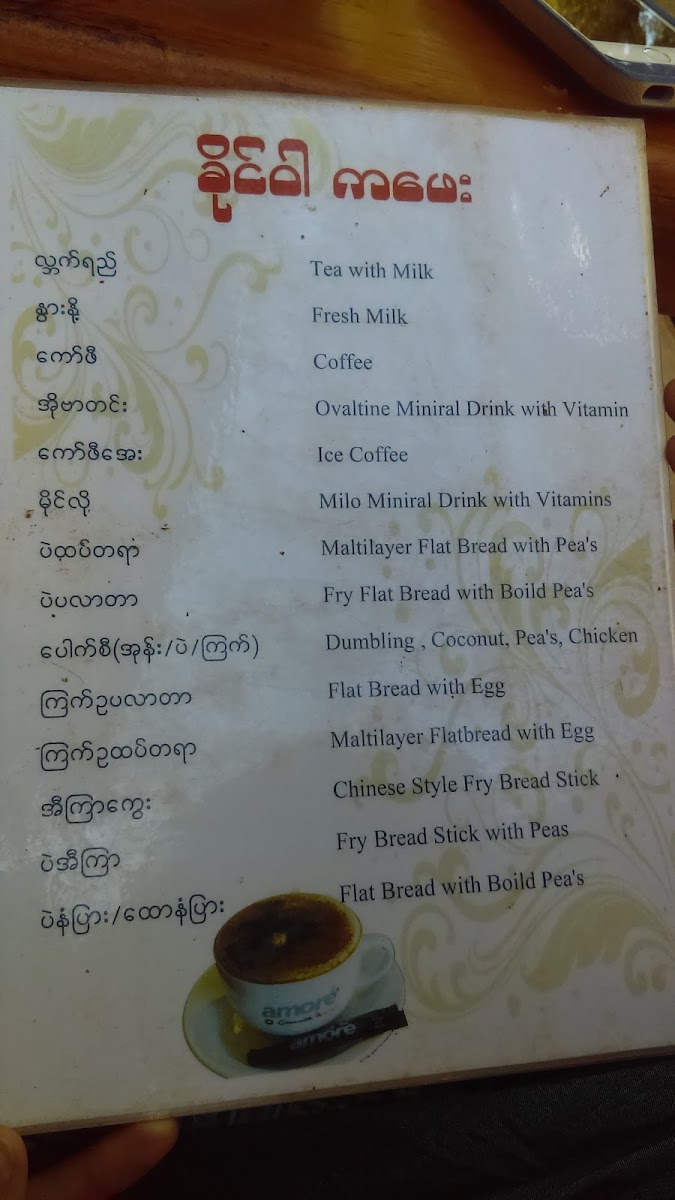 ခိုင်ဝါ ကဖေး
လ္ဘက်ရည် Tea with Milk
နွားနို့ Fresh Milk
ကော်ဖီ Coffee
အိုဗာတင်း Ovaltine Miniral Drink with Vitamin
ကော်ဖီအေး Ice Coffee
မိုင်လို Milo Miniral Drink with Vitamins
ပဲထပ်တရာ Maltilayer Flat Bread with Pea's
ပဲပလာတာ Fry Flat Bread with Boild Pea's
ပေါက်စီ(အုန်း/ပဲ/ကြက်) Dumbling , Coconut, Pea's, Chicken
ကြက်ဥပလာတာ Flat Bread with Egg
ကြက်ဥထပ်တရာ Maltilayer Flatbread with Egg
အီကြာကွေး Chinese Style Fry Bread Stick
ပဲအီကြာ Fry Bread Stick with Peas
ပဲနံပြား/ထောနံပြား Flat Bread with Boild Pea's
amore
amore